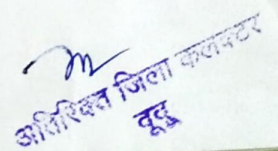 अतिरिक्त जिला कलक्टर
दूदू